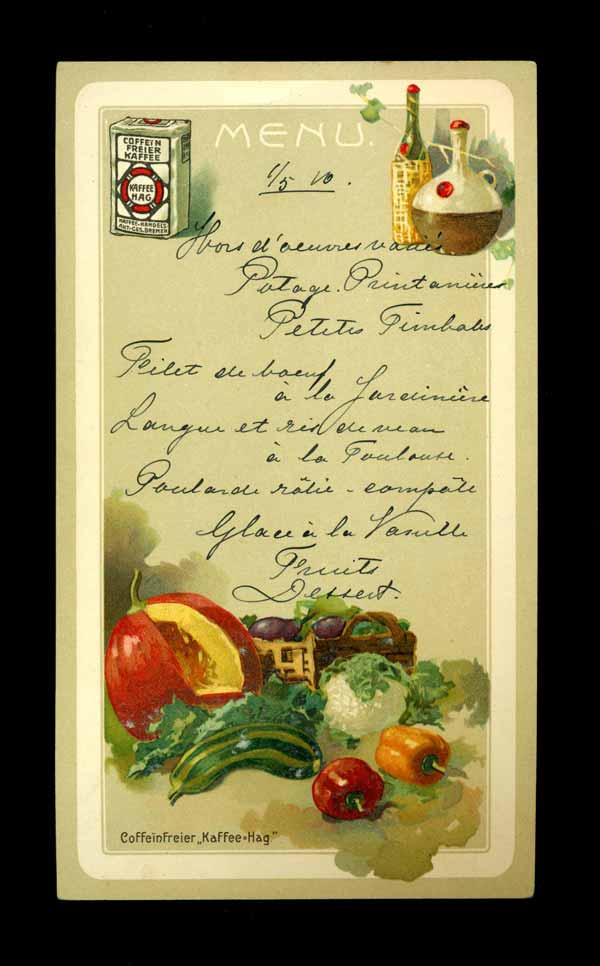 COFFEIN
FREIER
KAFFEE
KAFFEE
HAG
KAFFEE-HANDELS
AKT-GES. BREMEN
MENU.
1/5 10.
Hors d'oeuvres variés
Potage. Printanières
Petites Timbales
Filet de boeuf
à la Jardinière
Langue et ris de veau
à la Toulouse.
Poularde rôtie - compôte
Glace à la Vanille
Fruits
Dessert.
Coffeinfreier „Kaffee-Hag."